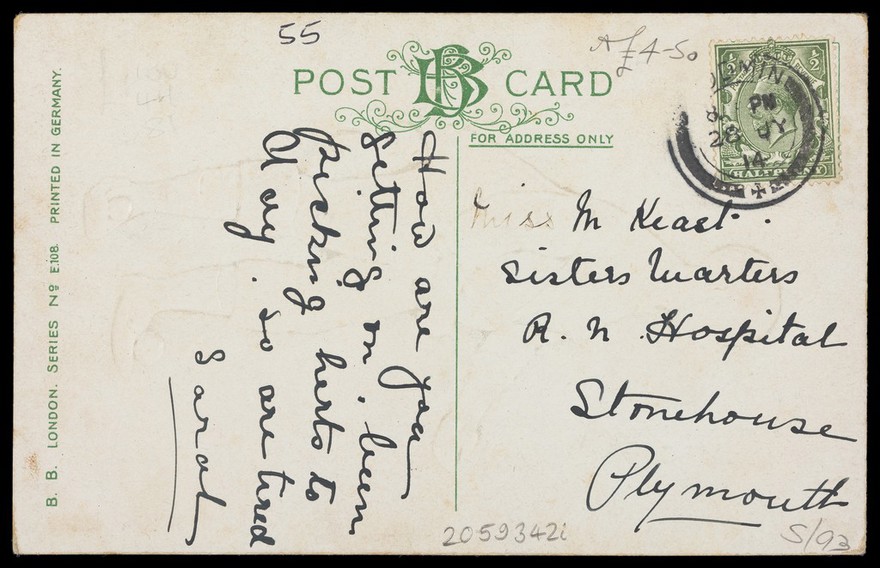 55
A £4-50
POST BB CARD
FOR ADDRESS ONLY
½ ½
PM
28 JY
14
HALFPENNY
B. B. LONDON. SERIES Nº E.108. PRINTED IN GERMANY.
How are you
getting on. been
picking herts to
day. so are tired
Sarah
Miss M Keast.
Sisters Quarters
R. N. Hospital
Stonehouse
Plymouth
2059342i
S/93